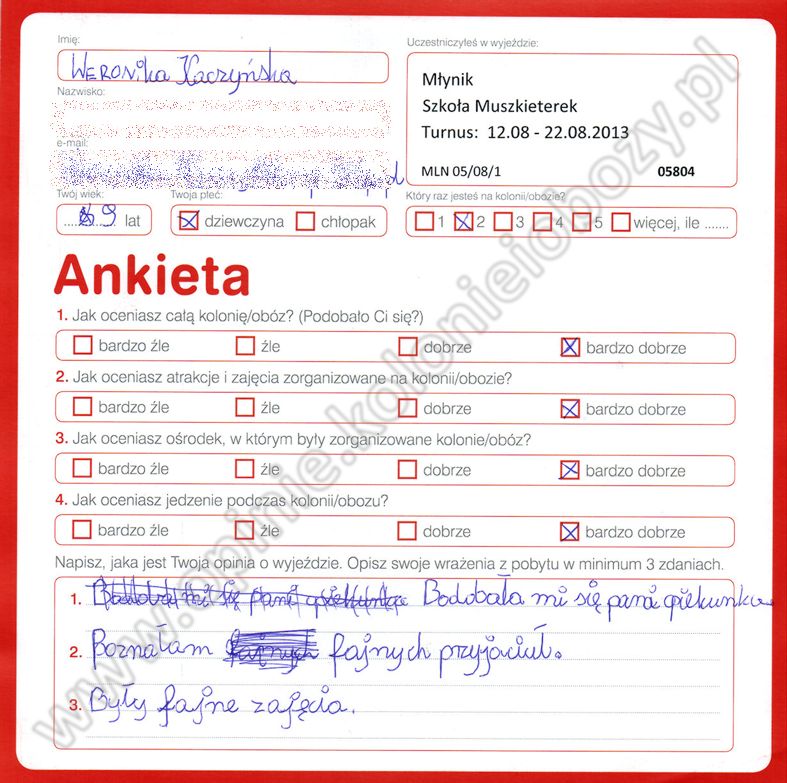 Imię:
Weronika Kaczyńska
Nazwisko:
e-mail:
Twój wiek:
9 lat
Twoja płeć:
dziewczyna chłopak
Uczestniczyłeś w wyjeździe:
Młynik
Szkoła Muszkieterek
Turnus: 12.08 - 22.08.2013
MLN 05/08/1 05804
Który raz jesteś na kolonii/obozie?
1 2 3 4 5 więcej, ile .......
Ankieta
1. Jak oceniasz całą kolonię/obóz? (Podobało Ci się?)
bardzo źle źle dobrze bardzo dobrze
2. Jak oceniasz atrakcje i zajęcia zorganizowane na kolonii/obozie?
bardzo źle źle dobrze bardzo dobrze
3. Jak oceniasz ośrodek, w którym były zorganizowane kolonie/obóz?
bardzo źle źle dobrze bardzo dobrze
4. Jak oceniasz jedzenie podczas kolonii/obozu?
bardzo źle źle dobrze bardzo dobrze
Napisz, jaka jest Twoja opinia o wyjeździe. Opisz swoje wrażenia z pobytu w minimum 3 zdaniach.
1. Bodobała mi się pani opiekunka
2. Poznałam fajnych przyjaciuł.
3. Były fajne zajęcia.
www.opinie.kolonieiobozy.pl